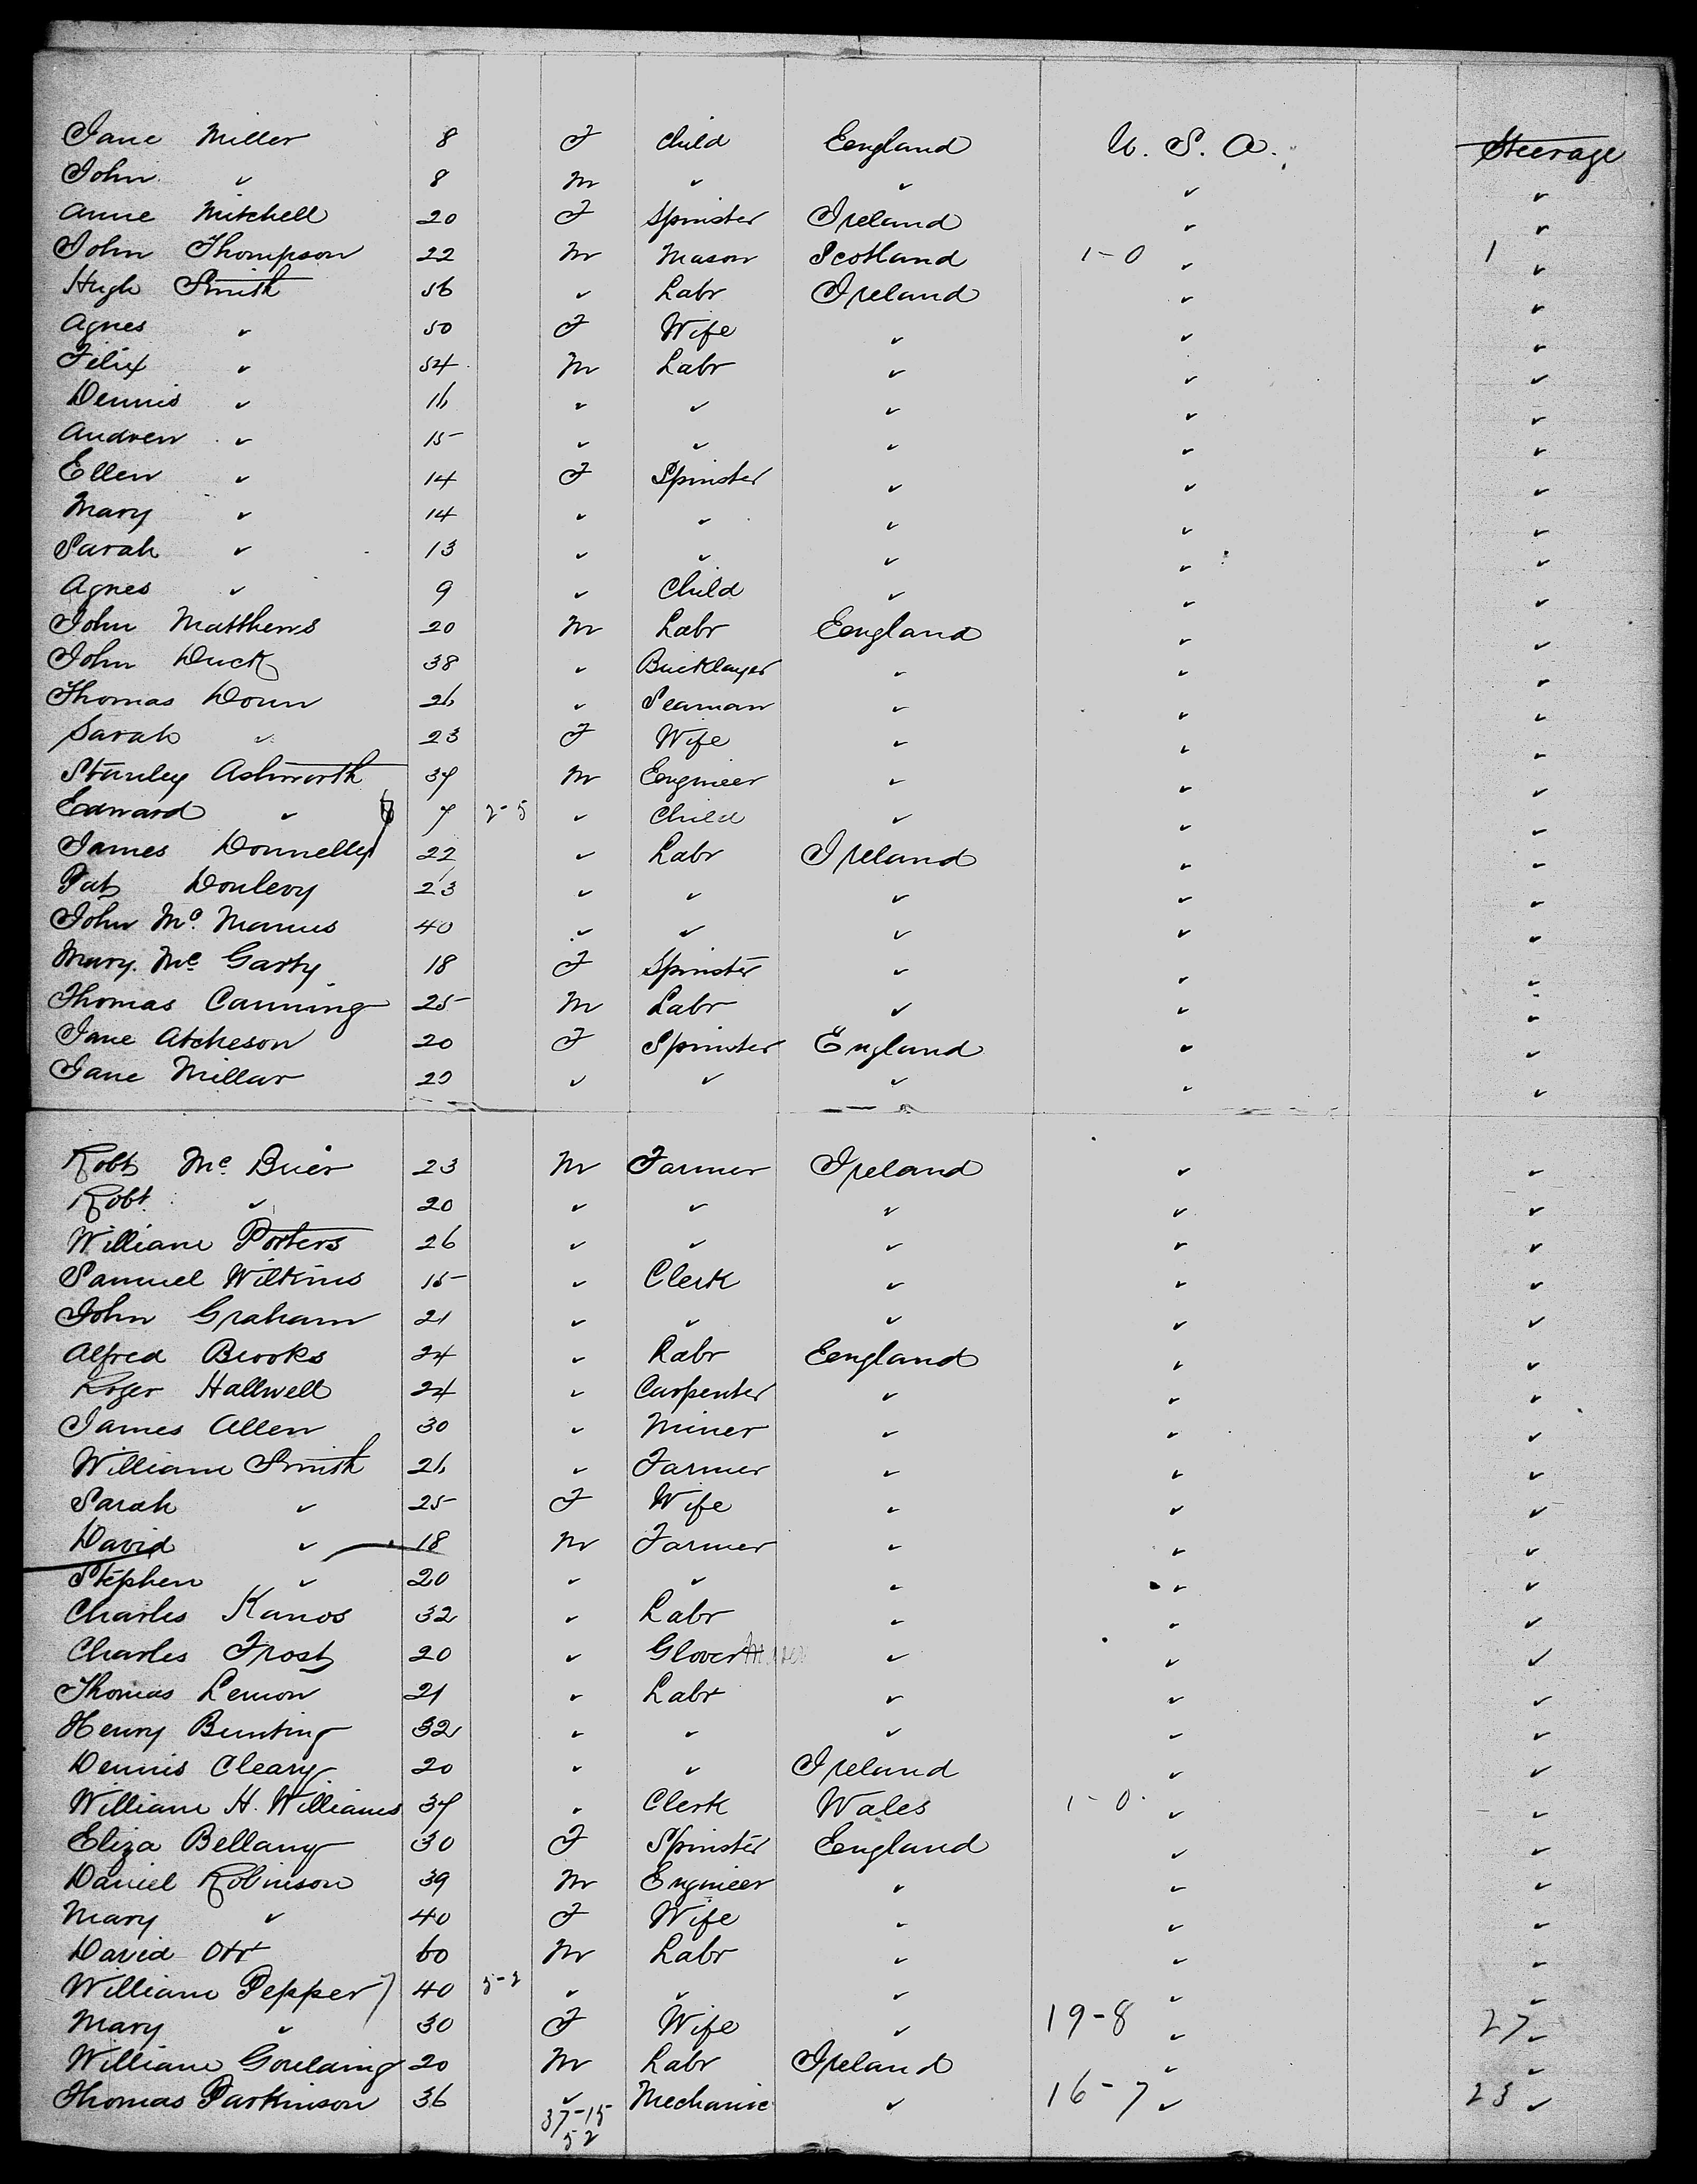 Jane Miller 8 F Child England U. S. A. Steerage
John " 8 M " " " "
Anne Mitchell 20 F Spinster Ireland " "
John Thompson 22 M Mason Scotland 1-0 " 1 "
Hugh Smith 56 " Labr Ireland " "
Agnes " 50 F Wife " " "
Felix " 54 M Labr " " "
Dennis " 16 " " " " "
Andrew " 15 " " " " "
Ellen " 14 F Spinster " " "
Mary " 14 " " " " "
Sarah " 13 " " " " "
Agnes " 9 " Child " " "
John Matthews 20 M Labr England " "
John Duck 38 " Bricklayer " " "
Thomas Donn 26 " Seaman " " "
Sarah " 23 F Wife " " "
Stanley Ashworth 37 M Engineer " " "
Edward " 7 2-5 " Child " " "
James Donnelly 22 " Labr Ireland " "
Pat Donlevy 23 " " " " "
John Mc Manus 40 " " " " "
Mary Mc Garty 18 F Spinster " " "
Thomas Canning 25 M Labr " " "
Jane Atcheson 20 F Spinster England " "
Jane Millar 20 " " " " "
Robt Mc Brier 23 M Farmer Ireland " "
Robt " 20 " " " " "
William Porters 26 " " " " "
Samuel Wilkins 15 " Clerk " " "
John Graham 21 " " " " "
Alfred Brooks 24 " Labr England " "
Roger Hallwell 24 " Carpenter " " "
James Allen 30 " Miner " " "
William Smith 26 " Farmer " " "
Sarah " 25 F Wife " " "
David " 18 M Farmer " " "
Stephen " 20 " " " " "
Charles Kanos 32 " Labr " " "
Charles Frost 20 " Glover " " "
Thomas Lemon 21 " Labr " " "
Henry Bunting 32 " " " " "
Dennis Cleary 20 " " Ireland " "
William H. Williams 37 " Clerk Wales 1-0 " "
Eliza Bellamy 30 F Spinster England " "
Daniel Robinson 39 M Engineer " " "
Mary " 40 F Wife " " "
David Orr 60 M Labr " " "
William Pepper 40 5-2 " " " " "
Mary " 30 F Wife " 19-8 " 27 "
William Goulding 20 M Labr Ireland " "
Thomas Parkinson 36 " Mechanic " 16-7 " 23 "
37-15
52